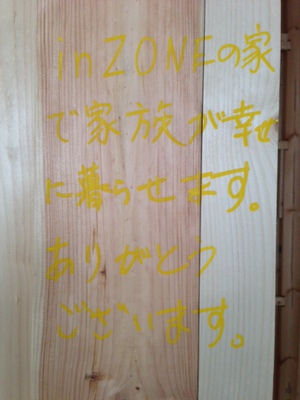 inZONEの家
で家族が幸せ
に暮らせます。
ありがとう
ございます。